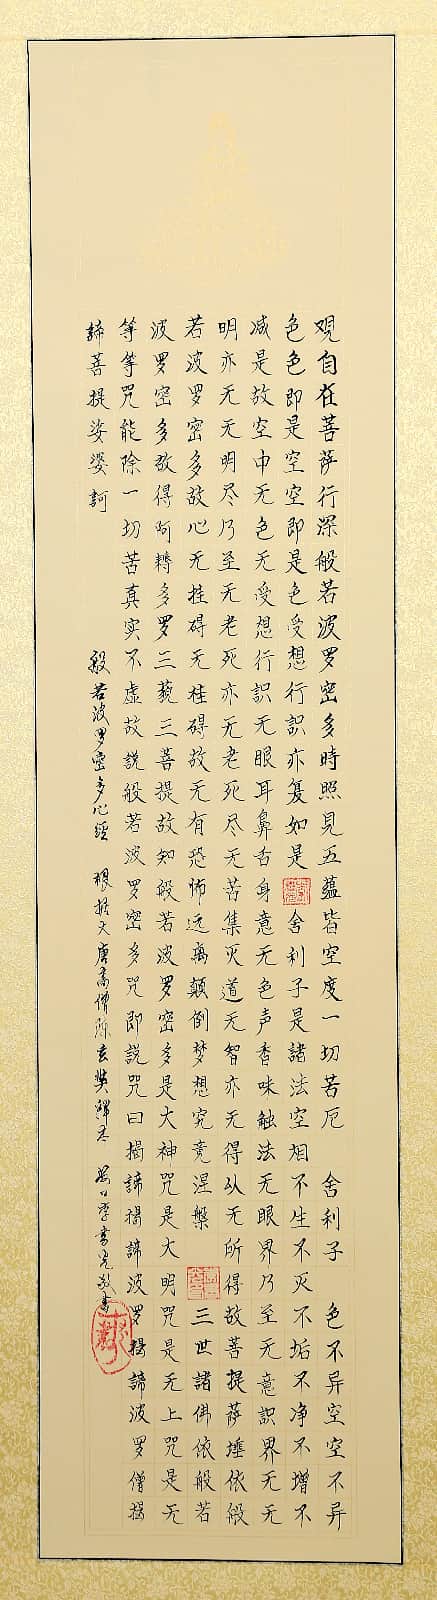 观自在菩萨行深般若波罗密多時照見五蕴皆空度一切苦厄 舍利子 色不异空空不异
色色即是空空即是色受想行識亦复如是 舍利子是諸法空相不生不灭不垢不净不增不
减是故空中无色无受想行識无眼耳鼻舌身意无色声香味触法无眼界乃至无意識界无无
明亦无无明尽乃至无老死亦无老死尽无苦集灭道无智亦无得以无所得故菩提萨埵依般
若波罗密多故心无挂碍无桂碍故无有恐怖远离颠倒梦想究竟涅槃 三世諸佛依般若
波罗密多故得阿耨多罗三藐三菩提故知般若波罗密多是大神咒是大明咒是无上咒是无
等等咒能除一切苦真实不虚故説般若波罗密多咒即説咒曰揭諦揭諦波罗揭諦波罗僧揭
諦菩提娑婆訶
般若波罗密多心經 根据大唐高僧陈玄奘譯本